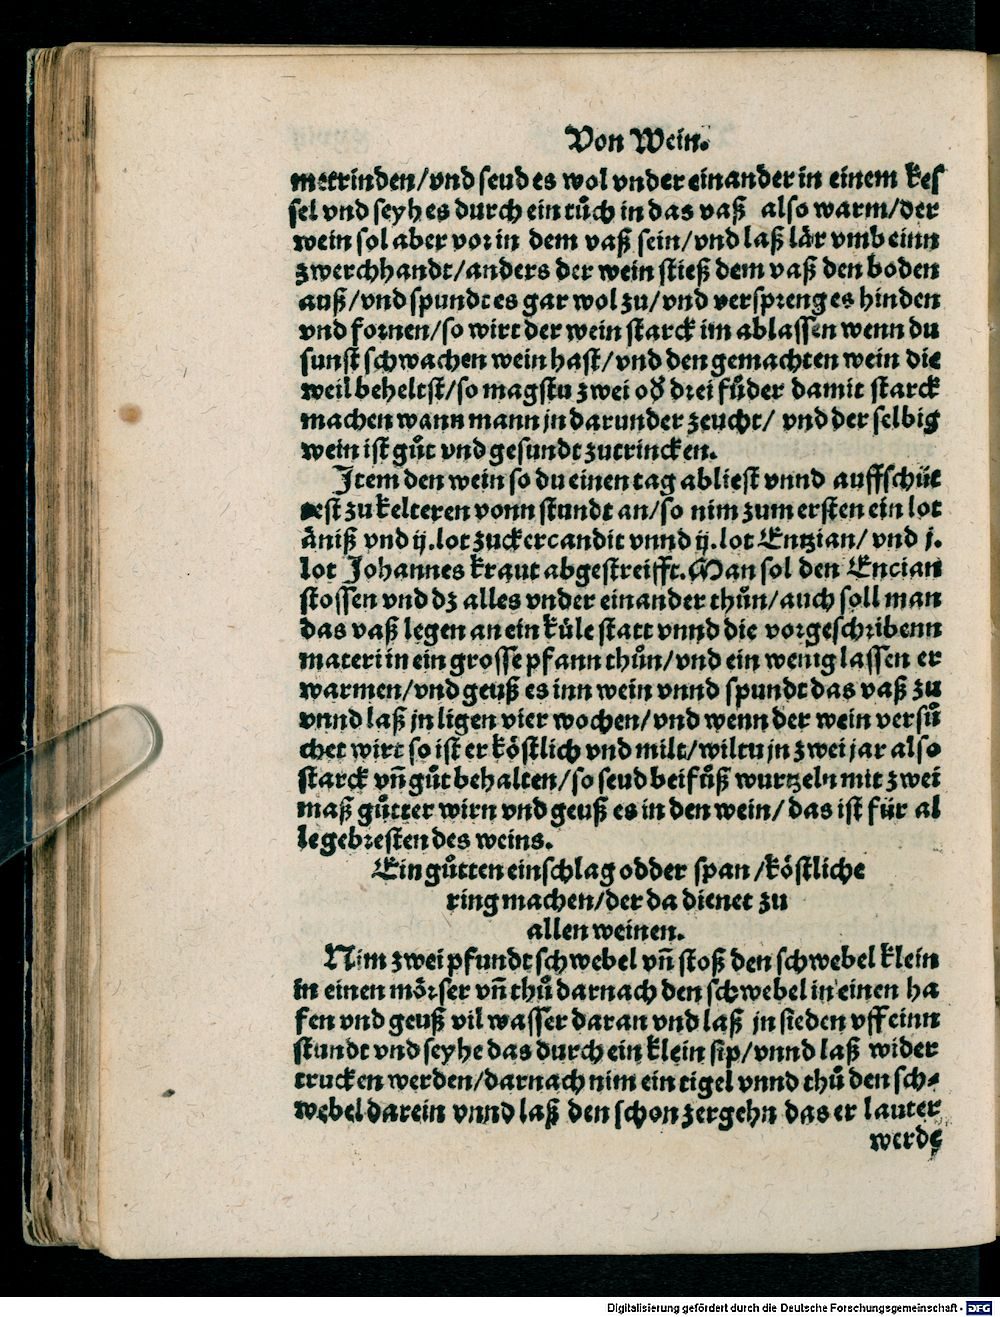 Von Wein.
metrinden/vnd seud es wol vnder einander in einem kes
sel vnd seyh es durch ein tůch in das vaß also warm/der
wein sol aber vor in dem vaß sein/vnd laß lär vmb einn
zwerchhandt/anders der wein stieß dem vaß den boden
auß/vnd spundt es gar wol zu/vnd verspreng es hinden
vnd fornen/so wirt der wein starck im ablassen wenn du
sunst schwachen wein hast/vnd den gemachten wein die
weil beheltst/so magstu zwei od̓ drei fůder damit starck
machen wann mann jn darunder zeucht/ vnd der selbig
wein ist gůt vnd gesundt zutrincken.
Item den wein so du einen tag abliest vnnd auffschüt
test zu kelteren vonn stundt an/so nim zum ersten ein lot
äniß vnd ij.lot zuckercandit vnnd ij.lot Entzian/ vnd j.
lot Johannes kraut abgestreifft. Man sol den Encian
stossen vnd dz alles vnder einander thůn/auch soll man
das vaß legen an ein küle statt vnnd die vorgeschribenn
materi in ein grosse pfann thůn/vnd ein wenig lassen er
warmen/vnd geuß es inn wein vnnd spundt das vaß zu
vnnd laß jn ligen vier wochen/vnd wenn der wein versů
chet wirt so ist er köstlich vnd milt/wiltu jn zwei jar also
starck vñ gůt behalten/so seud beifůß wurtzeln mit zwei
maß gůtter wirn vnd geuß es in den wein/ das ist für al
le gebresten des weins.
Ein gůtten einschlag odder span /köstliche
ring machen/der da dienet zu
allen weinen.
Nim zwei pfundt schwebel vñ stoß den schwebel klein
in einen mörser vñ thů darnach den schwebel in einen ha
fen vnd geuß vil wasser daran vnd laß jn sieden vff einn
stundt vnd seyhe das durch ein klein sip/vnnd laß wider
trucken werden/darnach nim ein tigel vnnd thů den sch⸗
webel darein vnnd laß den schon zergehn das er lauter
werde
Digitalisierung gefördert durch die Deutsche Forschungsgemeinschaft - DFG